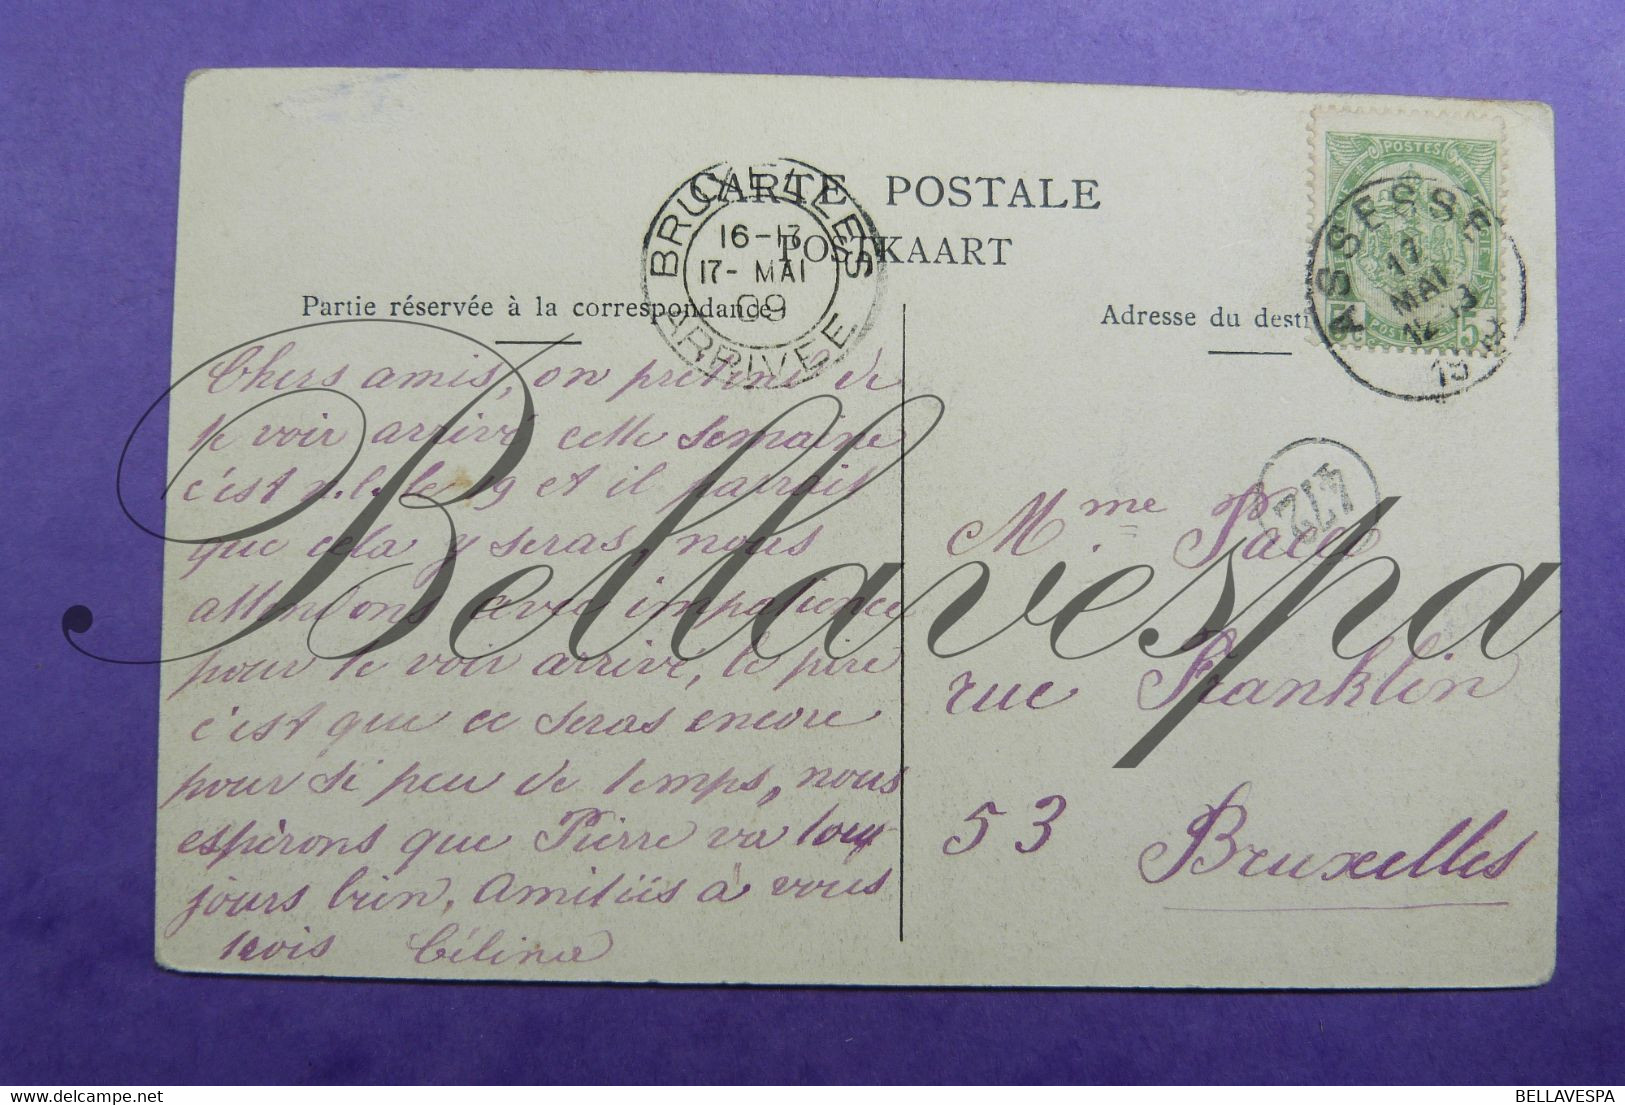 CARTE POSTALE
POSTKAART
BRUXELLES
16-17
17- MAI
09
ARRIVEE
POSTES
5
ASSESSE
17
MAI
12-13
19
Partie réservée à la correspondance
Adresse du desti
Chers amis, on prétend de
te voir arrivé cette semaine
c'est le 19 et il parait
que cela y seras, nous
attendons avec impatience
pour te voir arrivé, le pire
c'est que ce seras encore
pour si peu de temps, nous
espérons que Pierre va touj
jours bien, Amitiés à vous
trois Célina
472
Mme
rue Franklin
53
Bruxelles
Bellavespa
BELLAVESPA